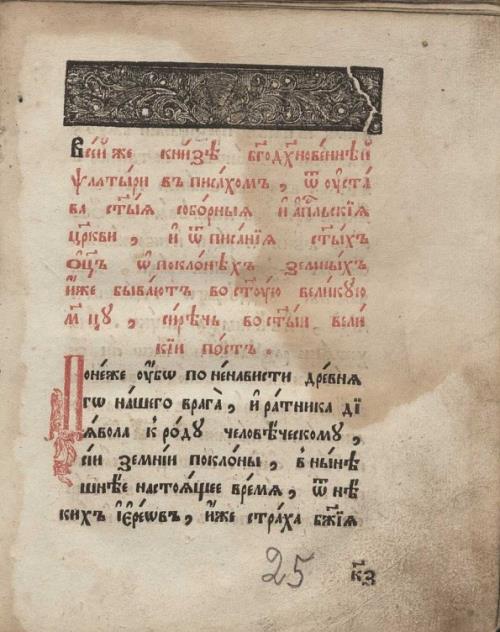 Всей́ же кни́зѣ бг҃одх҃нове́ннѣй
ѱалты́ри въписа́хомъ, ѿ ᲂуста́
ва ст҃ы́ѧ собо́рныѧ и҆ а҆пⷭ҇льскїѧ
цр҃кви, и҆ ѿ писа́нїѧ ст҃ы́хъ
ѻ҆ц҃ъ ѡ҆ покло́нѣхъ земны́хъ
и҆́же быва́ютъ во ст҃ꙋ́ю вели́кꙋю
м҃цꙋ, си́рѣчь во ст҃ы́й вели́
кїй по́стъ.
Поне́же ᲂу҆́бѡ по не́нависти дре́внѧ
гѡ на́шегѡ врага̀, и҆ ра́тника дї
ѧ́вола к ро́дꙋ человѣ́ческомꙋ,
сїи́ земні́и покло́ны, в ны́нѣ
шнѣе настоѧ́щее вре́мѧ, ѿ нѣ́
кихъ і҆ере́ѡвъ, и҆́же стра́ха бж҃їѧ
25
к҃з